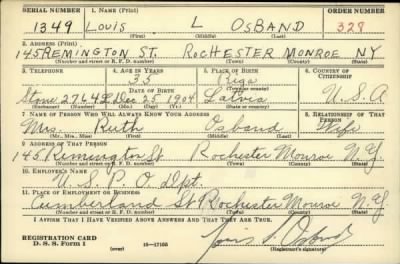 SERIAL NUMBER 1. NAME (Print) ORDER NUMBER
1349 LOUIS L OSBAND 328
(First) (Middle) (Last)
2. ADDRESS (Print)
145 REMINGTON ST. ROCHESTER MONROE NY
(Number and street or R. F. D. number) (Town) (County) (State)
3. TELEPHONE 4. AGE IN YEARS 5. PLACE OF BIRTH 6. COUNTRY OF CITIZENSHIP
35 Riga
DATE OF BIRTH (Town or county)
Stone 2764L Dec 25 1904 Latvia U.S.A
(Exchange) (Number) (Mo.) (Day) (Yr.) (State or country)
7. NAME OF PERSON WHO WILL ALWAYS KNOW YOUR ADDRESS 8. RELATIONSHIP OF THAT PERSON
Mrs. Ruth Osband Wife
(Mr., Mrs., Miss) (First) (Middle) (Last)
9. ADDRESS OF THAT PERSON
145 Remington St. Rochester Monroe N.Y.
(Number and street or R. F. D. number) (Town) (County) (State)
10. EMPLOYER'S NAME
U.S.P.O. Dpt.
11. PLACE OF EMPLOYMENT OR BUSINESS
Cumberland St Rochester Monroe N.Y
(Number and street or R. F. D. number) (Town) (County) (State)
I AFFIRM THAT I HAVE VERIFIED ABOVE ANSWERS AND THAT THEY ARE TRUE.
REGISTRATION CARD
D. S. S. Form 1 (over) 16—17105 Louis L Osband
(Registrant's signature)